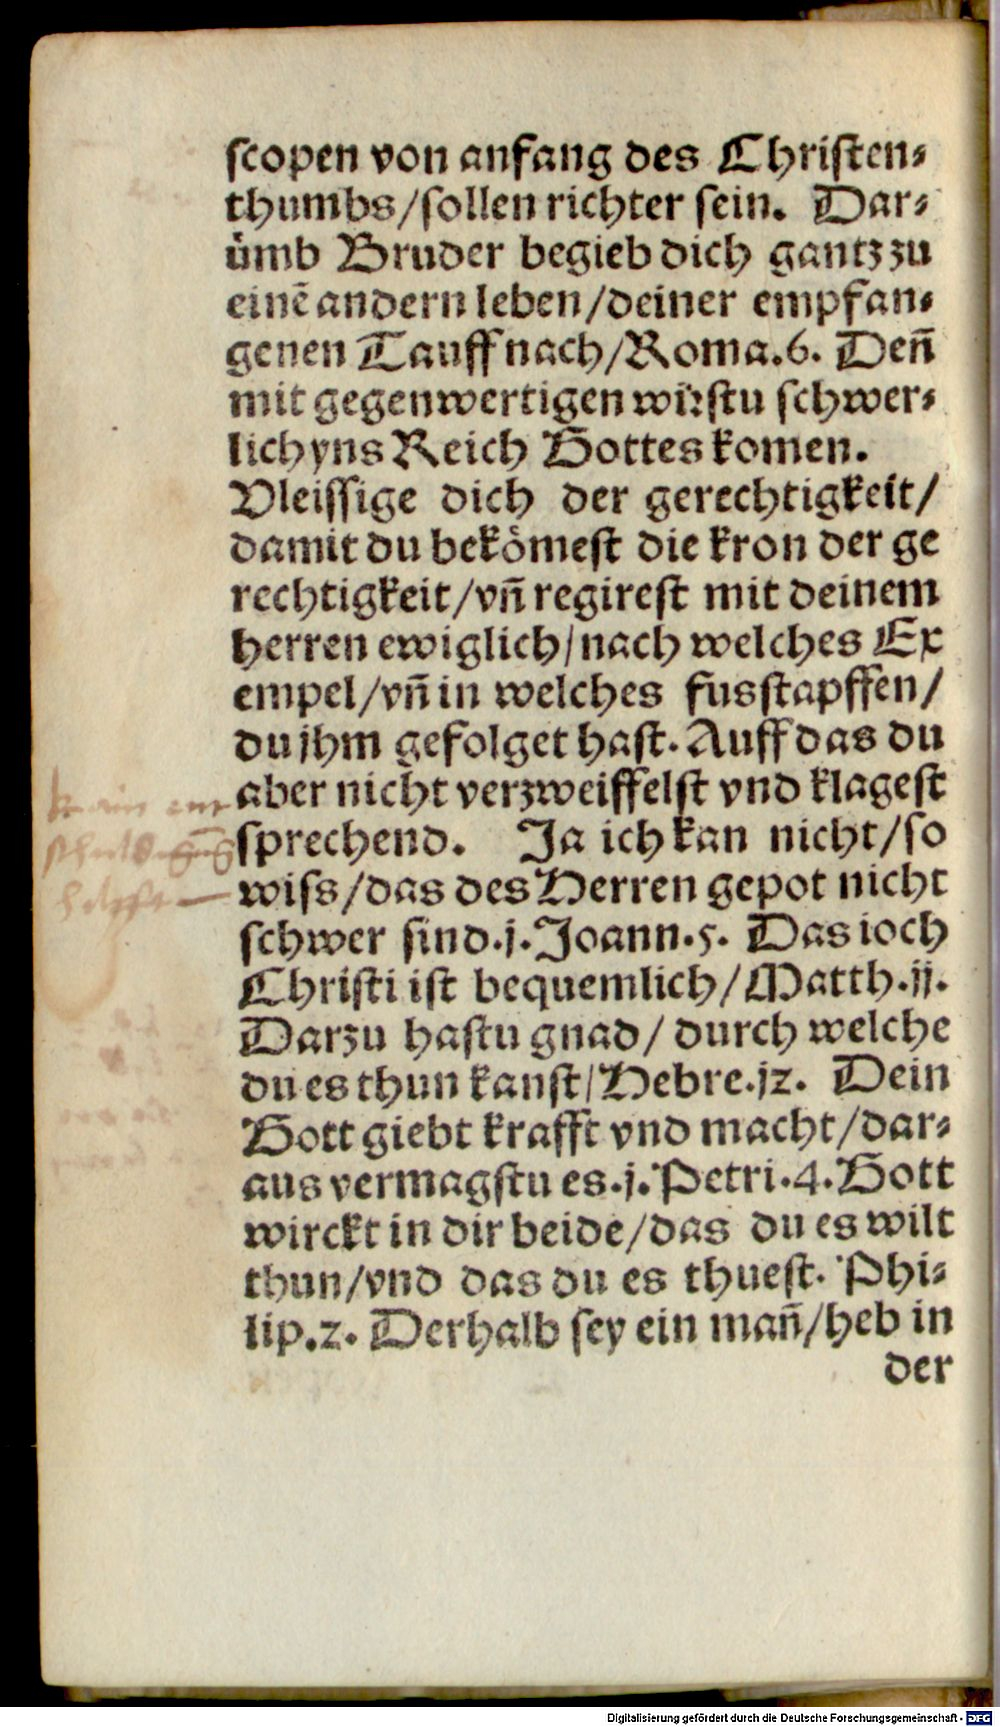 scopen von anfang des Christen⸗
thumbs/sollen richter sein. Dar⸗
ümb Bruder begieb dich gantz zu
einē andern leben/deiner empfan⸗
genen Tauff nach/Roma.6. Deñ
mit gegenwertigen wirstu schwer⸗
lich yns Reich Gottes komen.
Vleissige dich der gerechtigkeit/
damit du bekömest die kron der ge
rechtigkeit/vñ regirest mit deinem
herren ewiglich/nach welches Ex
empel/vñ in welches fusstapffen/
du jhm gefolget hast. Auff das du
aber nicht verzweiffelst vnd klagest
sprechend. Ja ich kan nicht/so
wiss/das des Herren gepot nicht
schwer sind.j.Joann.5. Das ioch
Christi ist bequemlich/Matth.jj.
Darzu hastu gnad/ durch welche
du es thun kanst/Hebre.jz. Dein
Gott giebt krafft vnd macht/dar⸗
aus vermagstu es.j.Petri.4.Gott
wirckt in dir beide/das du es wilt
thun/vnd das du es thuest. Phi⸗
lip.z. Derhalb sey ein mañ/heb in
der
kain ent
helfft
Digitalisierung gefördert durch die Deutsche Forschungsgemeinschaft - DFG